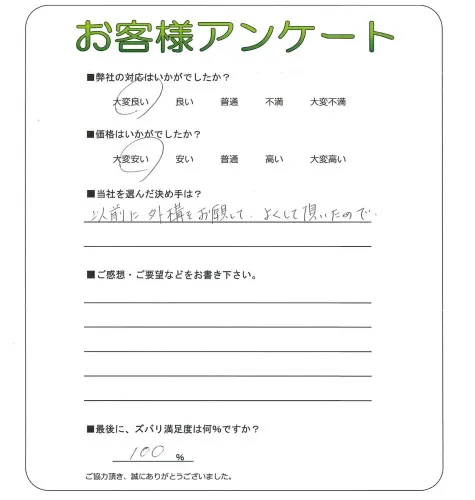 お客様アンケート
■弊社の対応はいかがでしたか？
大変良い 良い 普通 不満 大変不満
■価格はいかがでしたか？
大変安い 安い 普通 高い 大変高い
■当社を選んだ決め手は？
以前に外構をお願して、よくして頂いたので、
■ご感想・ご要望などをお書き下さい。
■最後に、ズバリ満足度は何％ですか？
100 ％
ご協力頂き、誠にありがとうございました。